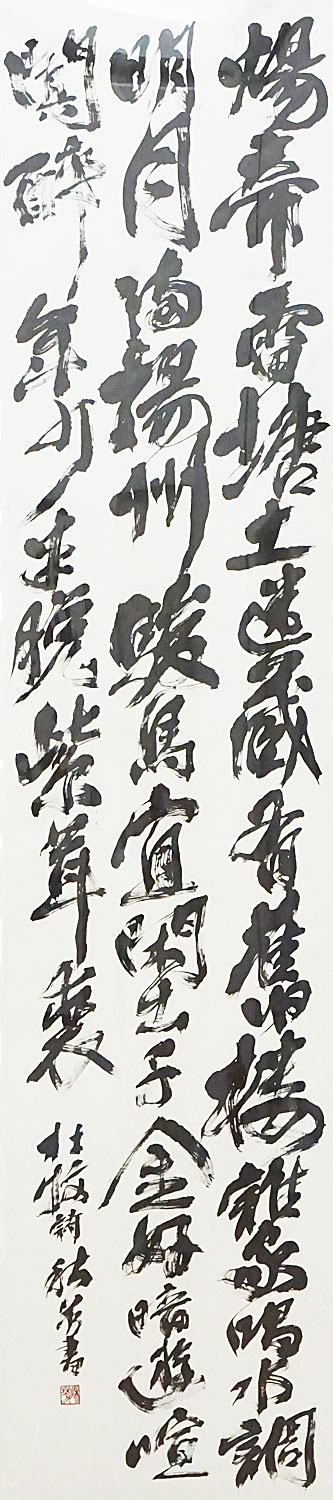 煬帝雷塘土迷藏有舊樓誰家唱水調
明月滿揚州駿馬宜閑出千金好暗遊喧
闐醉年少半脫紫茸裘
杜牧詩 書